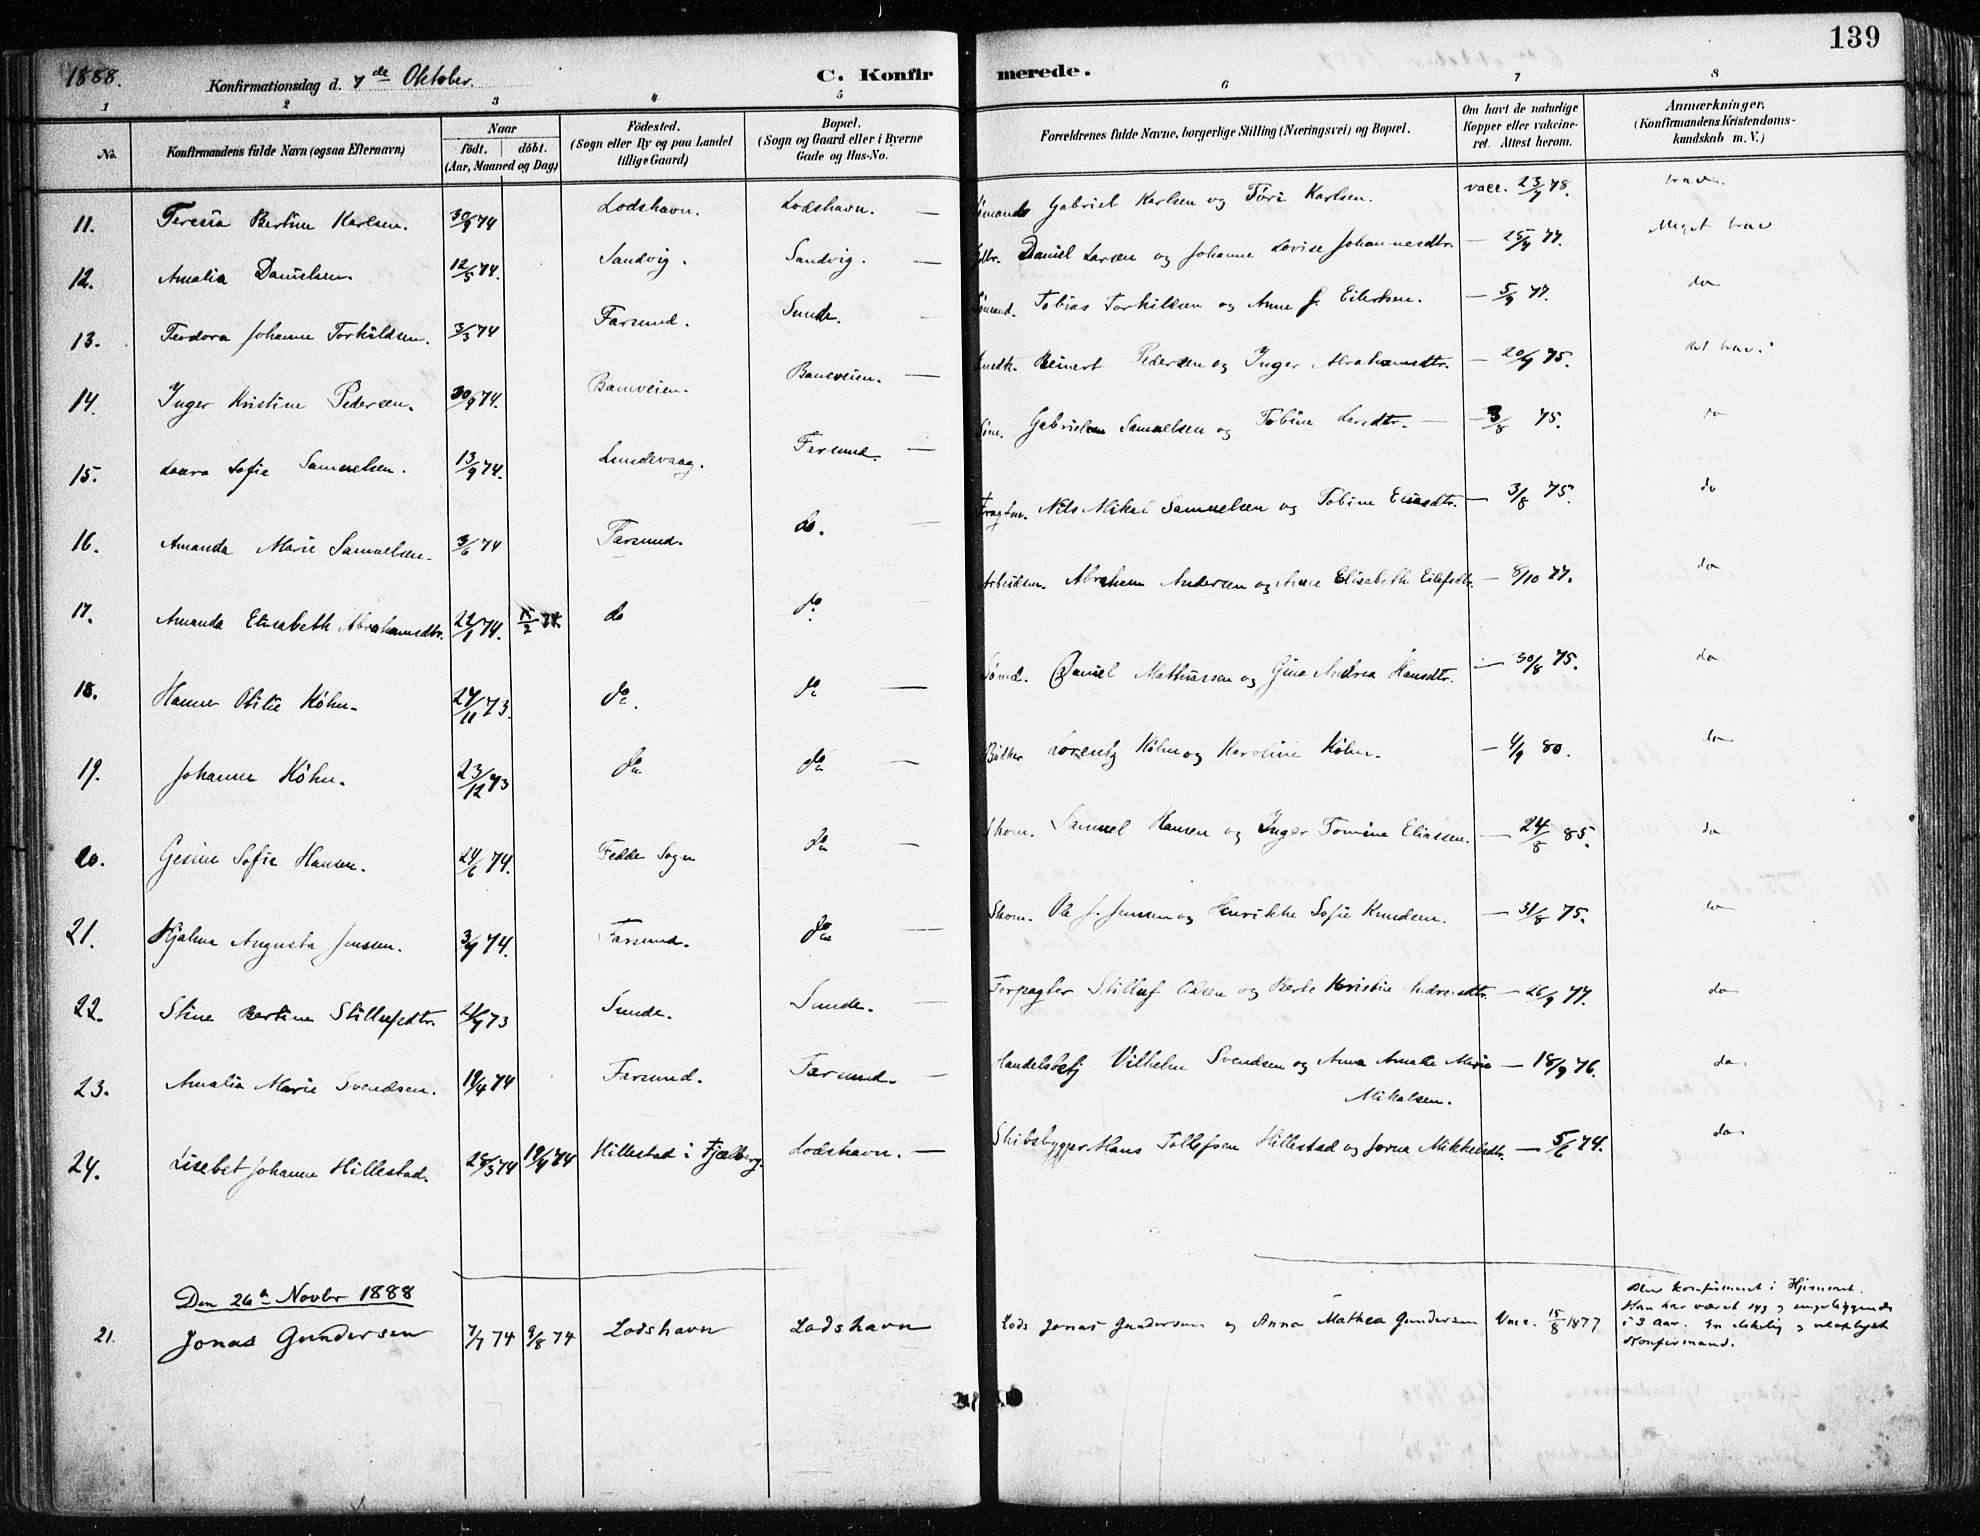 139
1888.
Konfirmationsdag d. 7de Oktober.
C. Konfirmerede.
1 2 3 4 5 6 7 8
No. Konfirmandens fulde Navn (ogsaa Efternavn) Naar født. døbt. (Aar, Maaned og Dag) Fødested. (Sogn eller By og paa Landet tillige Gaard) Bopæl. (Sogn og Gaard eller i Byerne Gade og Hus-No. Forældrenes fulde Navne, borgerlige Stilling (Næringsvei) og Bopæl. Om havt de naturlige Kopper eller vakcineret. Attest herom. Anmærkninger. (Konfirmandens Kristendomskundskab m. V.)
11. Teresia Bertine Karlsen. 30/9 74 Lodshavn. Lodshavn. — Gabriel Karlsen og Töri Karlsen. vacc. 23/7 78. brav.
12. Amalia Danielsen. 12/5 74. Sandvig. Sandvig. — Daniel Larsen og Johanne Lovise Johannesdtr. — 25/9 77. Meget brav
13. Teodora Johanne Torkildsen. 3/3 74 Farsund. Sunde. — Tobias Torkildsen og Anne J. Eilertsen. — 5/9 77. do
14. Inger Kristine Pedersen. 30/9 74. Baneveien. Baneveien. — Reinert Pedersen og Inger Abrahamsdtr. — 20/9 75. brav.
15. Laura Sofie Samuelsen. 13/9 74. Lundevaag. Farsund. — Gabrielsen Samuelsen og Tobine Larsdtr. — 3/8 75. do
16. Amanda Marie Samuelsen. 3/6 74 Farsund. do. — Fragtm. Nils Mikal Samuelsen og Tobine Eliasdtr. — 3/8 75. do
17. Amanda Elisabeth Abrahamsdtr. 22/1 74. 15/2 74. do do Arbeidsm. Abraham Andersen og Anne Elisabeth Eilefsdtr. — 8/10 77. do
18. Hanne Otilie Köhn. 27/11 73. do. do — Sömd. Daniel Mathiassen og Gina Andrea Hansdtr. — 30/8 75. do
19. Johanne Köhn. 23/12 73 do do — Bödker Lorentz Köhn og Karoline Köhn. — 4/9 80. do
20. Gesine Sofie Hansen. 24/6 74. Fedde Sogn do — Skom. Samuel Hansen og Inger Tomine Eliassen. — 24/8 85. do
21. Hjalma Augusta Jensen. 3/9 74. Farsund. do — Skom. Ole J. Jensen og Henrikke Sofie Knudsen. — 31/8 75. do
22. Stine Bertine Stillufsdtr. 73 Sunde. Sunde. — Forpagter Stilluf Olsen og Berte Kristine Andreasdtr. — 26/9 77. do
23. Amalia Marie Svendsen. 19/4 74 Farsund. Farsund. — Handelsbetj Vilhelm Svendsen og Anna Amalie Marie Mikalsen. — 18/9 76. do
24. Lisebet Johanne Hillestad. 28/3 74 19/4 74 Hillestad i Fjelberg. Lodshavn. — Skibsbygger Hans Tollefsen Hillestad og Jorna Mikkelsdtr. — 5/6 74. do
Den 26de Novbr 1888
21. Jonas Gundersen 7/7 74 9/8 74 Lodshavn Lodshavn Lods Jonas Gundersen og Anna Mathea Gundersen Vacc. 15/8 1877 Blev konfirmeret i Hjemmet.
Han har været syg og sengeliggende
i 3 Aar. En elskelig og veloplyst
Konfirmand.